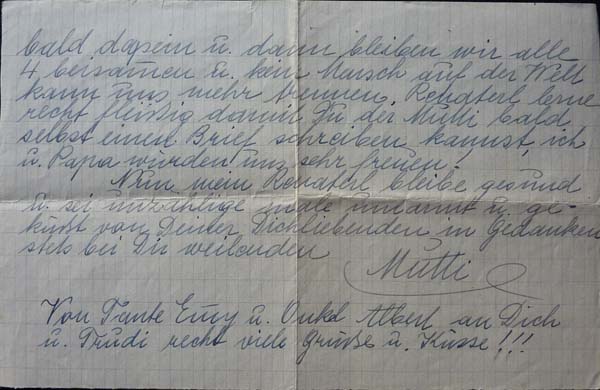 bald dasein u. dann bleiben wir alle
4 beisamen u. kein Mensch auf der Welt
kann uns mehr trennen. Renaterl lerne
recht fleißig damit Du der Mutti bald
selbst einen Brief schreiben kannst, ich
u. Papa wurden uns sehr freuen!
Nun mein Renaterl bleibe gesund
u. sei unzählige male umarmt u. ge-
küßt von Deiner Dichliebenden in Gedanken
stets bei Dir weilenden
Mutti
Von Tante Emy u. Onkel Albert an Dich
u. Trudi recht viele Grüße u. Küsse!!!